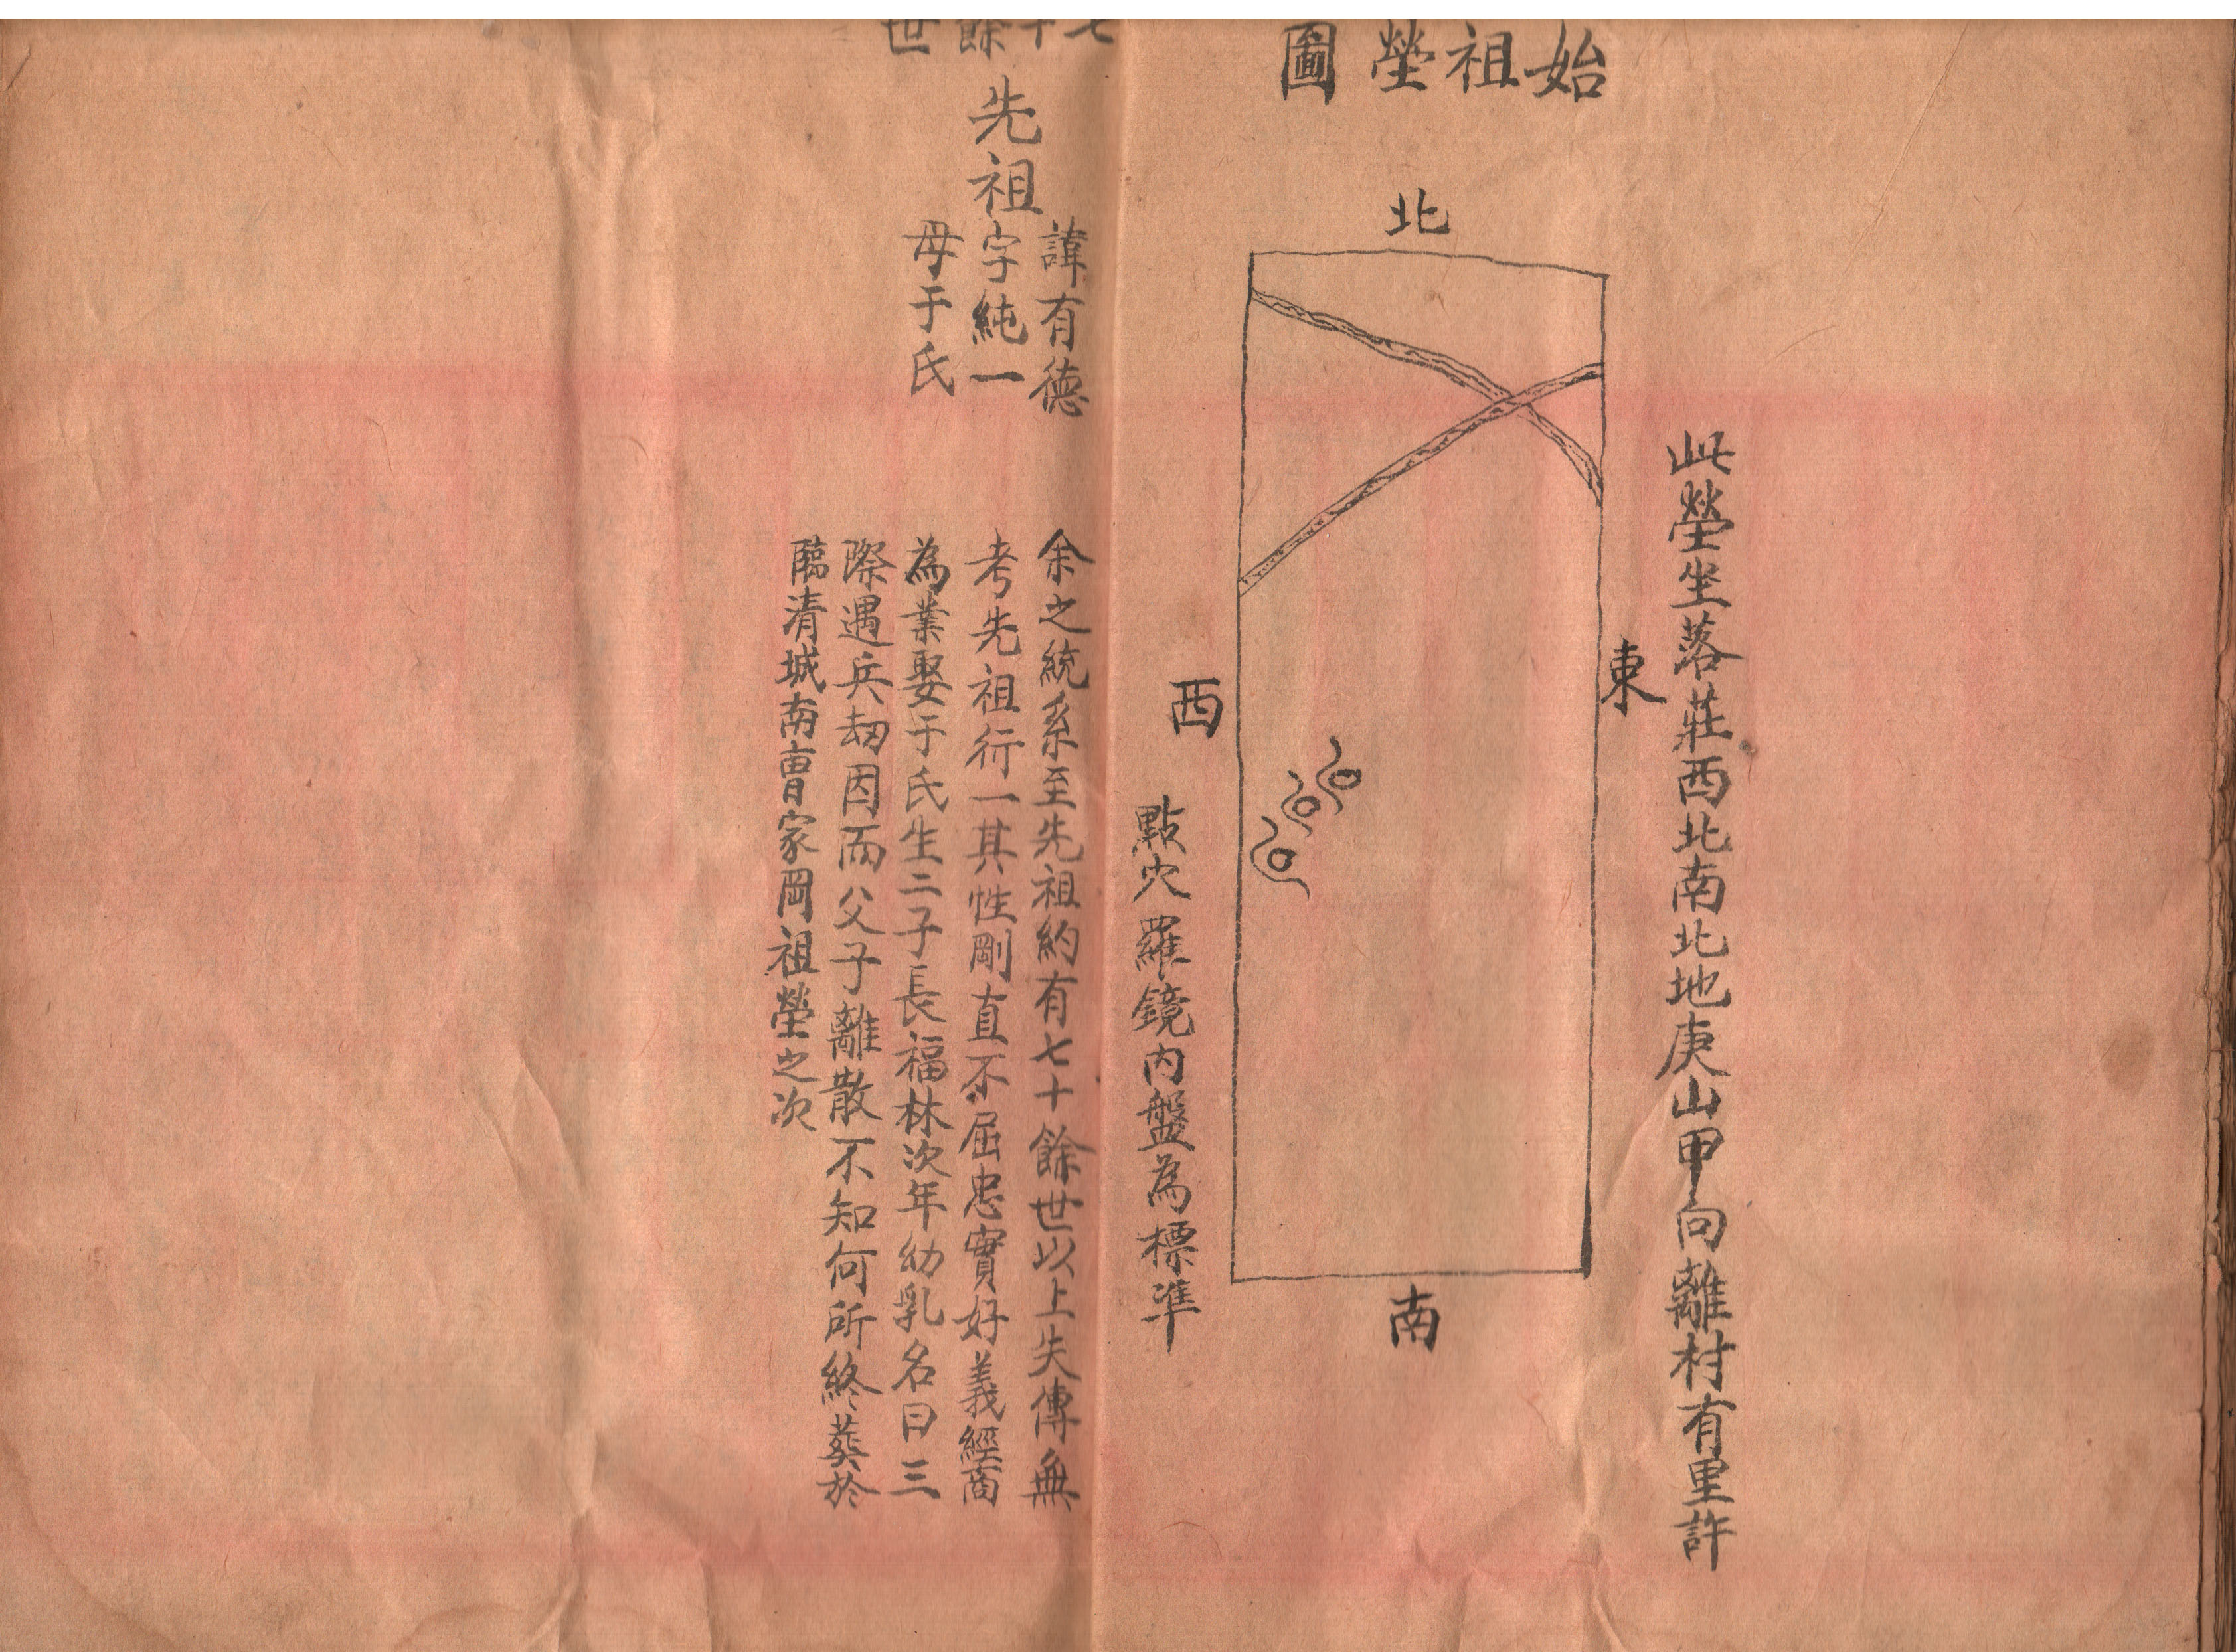 始祖塋圖
北
此塋坐落莊西北南北地庚山甲向離村有里許
東
南
西
點穴羅鏡內盤為標準
七十餘世
先祖
諱有德
字純一
母于氏
余之統系至先祖約有七十餘世以上失傳無
考先祖行一其性剛直不屈忠實好義經商
為業娶于氏生二子長福林次年幼乳名曰三
際遇兵刧因而父子離散不知何所終葬於
臨清城南曹家岡祖塋之次